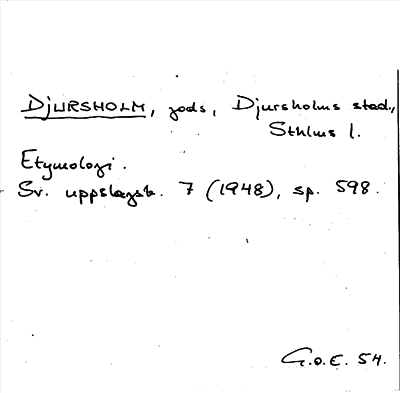 DJURSHOLM, gods, Djursholms stad,
Sthlms l.
Etymologi.
Sv. uppslagsb. 7 (1948), sp. 598.
G.O.E. 54.